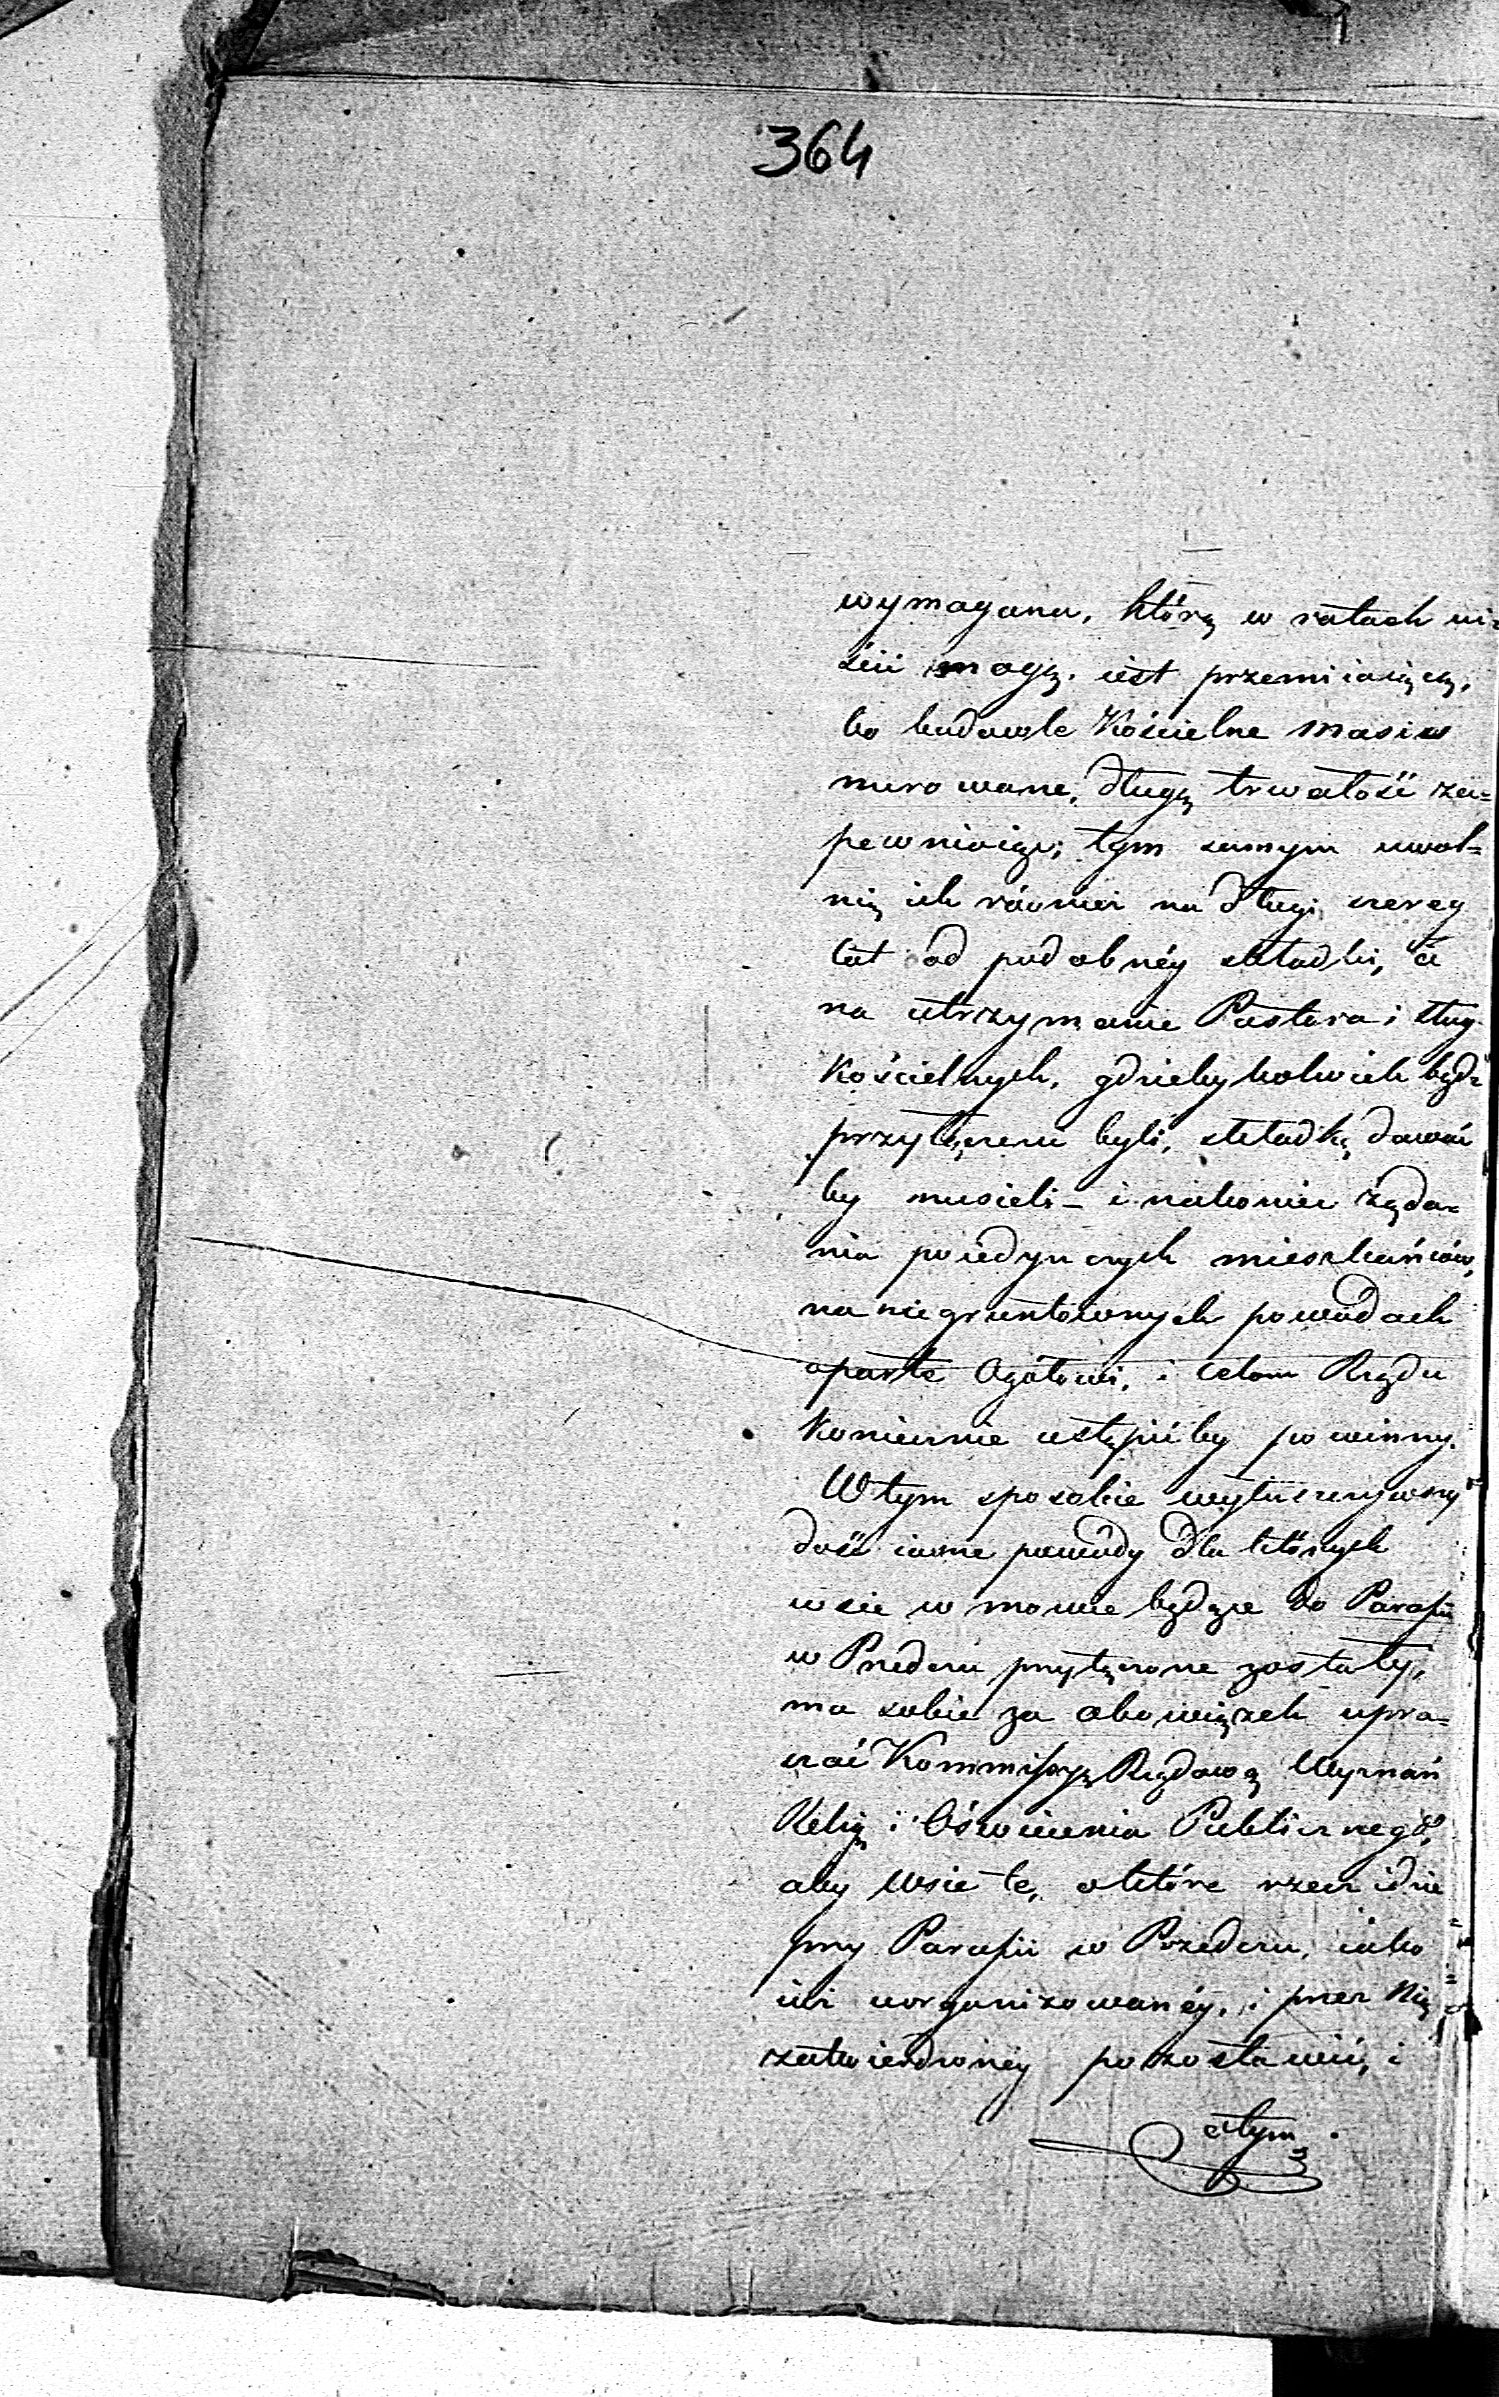 364
wymagana, którą w ratach ui-
ścić mogą, iest przemiiaiącą,
bo budowle Kościelne masiw
murowane, długą trwałość za=
pewniaiąc; tym samym uwol=
nią ich również na długi szereg
lat od podobnéy składki, a
na utrzymanie Pastora i sług
Kościelnych, gdzieby kolwiek bądź
przyłączeni byli, składkę dawać
by musieli – i nakoniec żąda=
nia poiedynczych mieszkańców,
na niegruntownych powodach
oparte Ogółowi, i celom Rządu
koniecznie ustąpić by powinny.
W tym sposobie wytłuszczywszy
dość iasne powody dla których
wsie w mowie będące do Parafii
w Przedczu przyłączone zostały,
ma sobie za obowiązek upra=
szać Kommissyą Rządową Wyznań
Relig i Oświecenia Publicznego,
aby Wsie te, o które rzecz idzie
przy Parafii w Przedczu, iako
iuż uorganizowanéy, i przez Nią
zatwierdzonéy pozostawić, i
o tym